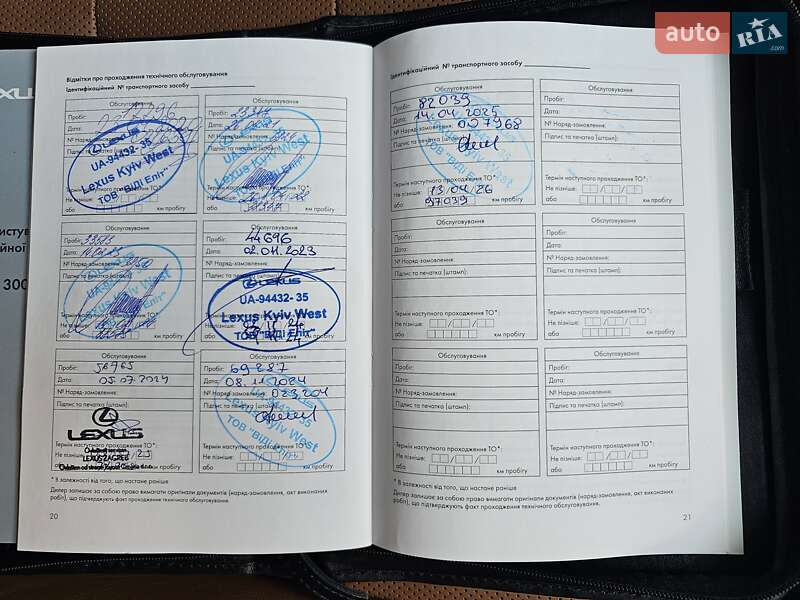 auto RIA.com
XUS
истув
ійної
300
Відмітки про проходження технічного обслуговування
Ідентифікаційний № транспортного засобу
Обслуговування
Пробіг:
Дата:
№ Наряд
LEXUS
UA-94432-35
Lexus Kyiv West
ТОВ "ВІДІ Еліт"
або
км пробігу
Обслуговування
Пробіг:
Дата:
Lexus Kyiv West
Термін наступного проходження ТО*:
Не пізніше:
або
км пробігу
Обслуговування
Пробіг:
Дата:
№ Наряд-замовлення:
Підпис та печатка (штамп):
Термін наступного проходження ТО*:
Не пізніше:
або
км пробігу
Обслуговування
Пробіг: 44696
Дата: 02.11.2023
№ Наряд-замовлення:
Підпис та печатка (штамп):
LEXUS
UA-94432-35
Lexus Kyiv West
ТОВ "ВІДІ Еліт"
або
км пробігу
Обслуговування
Пробіг: 56765
Дата: 05.07.2024
№ Наряд-замовлення:
Підпис та печатка (штамп):
LEXUS
LEXUS ZAGREB
Термін наступного проходження ТО*:
Не пізніше:
або
км пробігу
Обслуговування
Пробіг: 69287
Дата: 08.11.2024
№ Наряд-замовлення: 023204
Підпис та печатка (штамп):
UA-94432-35
Lexus Kyiv West
ТОВ "ВІДІ Еліт"
Термін наступного проходження ТО*:
Не пізніше:
або
км пробігу
* В залежності від того, що настане раніше
Дилер залишає за собою право вимагати оригінали документів (наряд-замовлення, акт виконаних
робіт), що підтверджують факт проходження технічного обслуговування.
20
Ідентифікаційний № транспортного засобу
Обслуговування
Пробіг: 82039
Дата: 14.04.2025
№ Наряд-замовлення: 007968
Підпис та печатка (штамп):
Lexus Kyiv West
ТОВ "ВІДІ Еліт"
Термін наступного проходження ТО*:
Не пізніше: 13 04 26
або 97039
км пробігу
Обслуговування
Пробіг:
Дата:
№ Наряд-замовлення:
Підпис та печатка (штамп):
Термін наступного проходження ТО*:
Не пізніше:
або
км пробігу
Обслуговування
Пробіг:
Дата:
№ Наряд-замовлення:
Підпис та печатка (штамп):
Термін наступного проходження ТО*:
Не пізніше:
або
км пробігу
Обслуговування
Пробіг:
Дата:
№ Наряд-замовлення:
Підпис та печатка (штамп):
Термін наступного проходження ТО*:
Не пізніше:
або
км пробігу
Обслуговування
Пробіг:
Дата:
№ Наряд-замовлення:
Підпис та печатка (штамп):
Термін наступного проходження ТО*:
Не пізніше:
або
км пробігу
Обслуговування
Пробіг:
Дата:
№ Наряд-замовлення:
Підпис та печатка (штамп):
Термін наступного проходження ТО*:
Не пізніше:
або
км пробігу
* В залежності від того, що настане раніше
Дилер залишає за собою право вимагати оригінали документів (наряд-замовлення, акт виконаних
робіт), що підтверджують факт проходження технічного обслуговування.
21